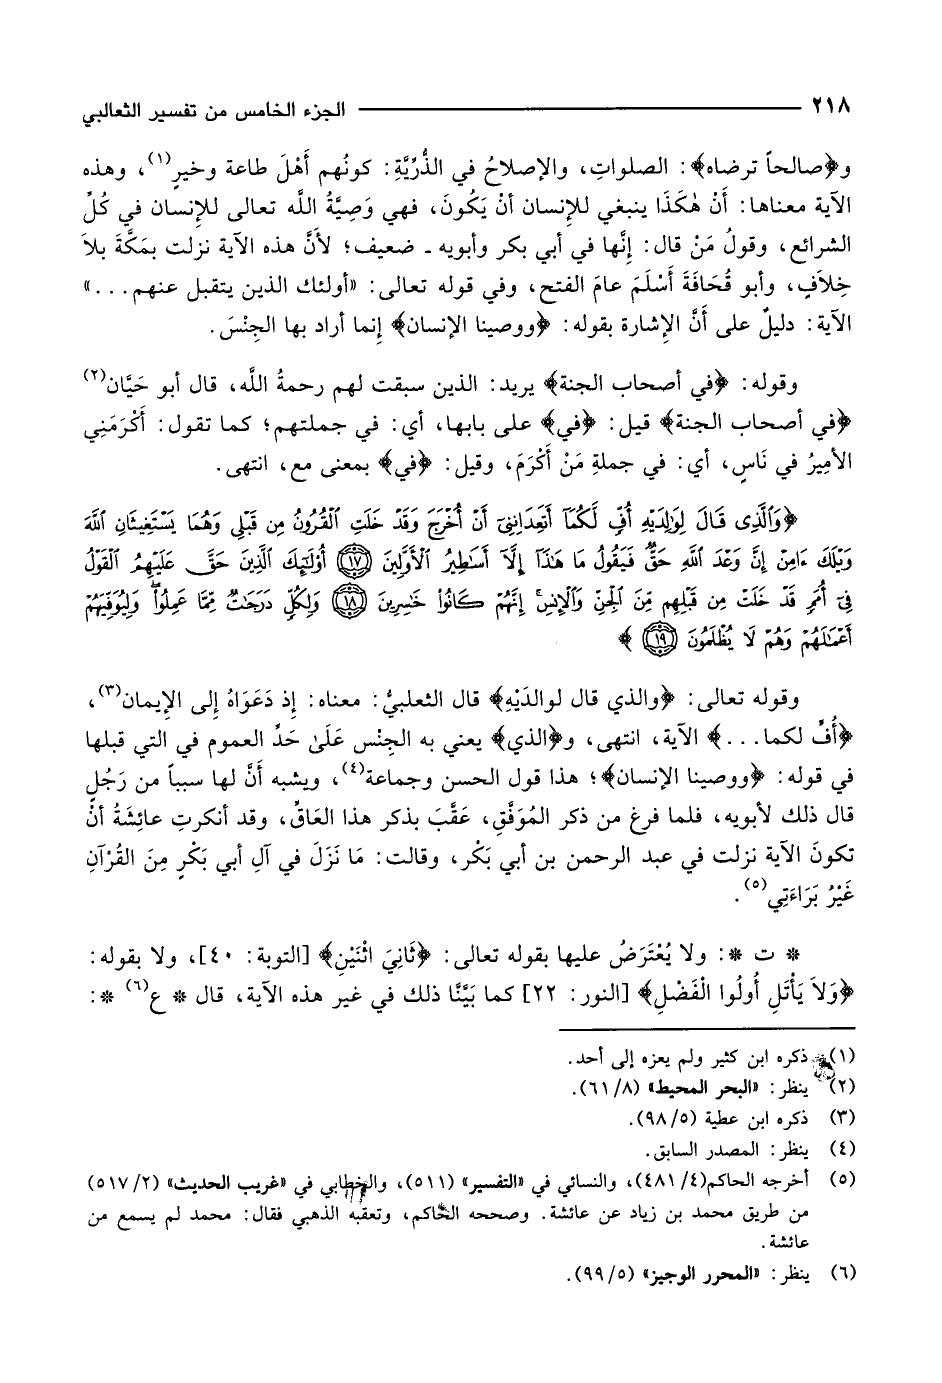 ٢١٨ ــــــــــ الجزء الخامس من تفسير الثعالبي
و﴿صالحاً ترضاه﴾: الصلواتِ، والإصلاحُ في الذُّرِّيَّةِ: كونُهم أَهْلَ طاعة وخيرٍ(١)، وهذه
الآية معناها: أَنْ هٰكَذَا ينبغي للإنسان أنْ يَكُونَ، فهي وَصِيَّةُ اللَّه تعالى للإنسان في كُلِّ
الشرائع، وقولُ مَنْ قال: إنَّها في أبي بكر وأبويه ـ ضعيف؛ لأَنَّ هذه الآية نزلت بمَكَّةَ بلاَ
خِلاَفٍ، وأبو قُحَافَةَ أَسْلَمَ عامَ الفتح، وفي قوله تعالى: «أولئك الذين يتقبل عنهم...»
الآية: دليلٌ على أَنَّ الإشارة بقوله: ﴿ووصينا الإنسان﴾ إنما أراد بها الجِنْسَ.
وقوله: ﴿في أصحاب الجنة﴾ يريد: الذين سبقت لهم رحمةُ اللَّه، قال أبو حَيَّان(٢)
﴿في أصحاب الجنة﴾ قيل: ﴿في﴾ على بابها، أي: في جملتهم؛ كما تقول: أَكْرَمَنِي
الأميرُ في نَاسٍ، أي: في جملةِ مَنْ أَكْرَمَ، وقيل: ﴿في﴾ بمعنى مع، انتهى.
﴿وَٱلَّذِى قَالَ لِوَٰلِدَيْهِ أُفٍّ لَّكُمَآ أَتَعِدَانِنِىٓ أَنْ أُخْرَجَ وَقَدْ خَلَتِ ٱلْقُرُونُ مِن قَبْلِى وَهُمَا يَسْتَغِيثَانِ ٱللَّهَ
وَيْلَكَ ءَامِنْ إِنَّ وَعْدَ ٱللَّهِ حَقٌّ فَيَقُولُ مَا هَٰذَآ إِلَّآ أَسَٰطِيرُ ٱلْأَوَّلِينَ ﴿١٧﴾ أُوْلَٰٓئِكَ ٱلَّذِينَ حَقَّ عَلَيْهِمُ ٱلْقَوْلُ
فِىٓ أُمَمٍ قَدْ خَلَتْ مِن قَبْلِهِم مِّنَ ٱلْجِنِّ وَٱلْإِنسِ إِنَّهُمْ كَانُوا۟ خَٰسِرِينَ ﴿١٨﴾ وَلِكُلٍّ دَرَجَٰتٌ مِّمَّا عَمِلُوا۟ وَلِيُوَفِّيَهُمْ
أَعْمَٰلَهُمْ وَهُمْ لَا يُظْلَمُونَ ﴿١٩﴾ ﴾
وقوله تعالى: ﴿والذي قال لوالدَيْهِ﴾ قال الثعلبيُّ: معناه: إذ دَعَوَاهُ إلى الإيمان(٣)،
﴿أُفٍّ لكما...﴾ الآية، انتهى، و﴿الذي﴾ يعني به الجِنْس عَلَىٰ حَدِّ العموم في التي قبلها
في قوله: ﴿ووصينا الإنسان﴾؛ هذا قول الحسن وجماعة(٤)، ويشبه أَنَّ لها سبباً من رَجُلٍ
قال ذلك لأبويه، فلما فرغ من ذكر المُوَفَّقِ، عَقَّبَ بذكر هذا العَاقِّ، وقد أنكرتِ عائِشَةُ أنْ
تكونَ الآية نزلت في عبد الرحمن بن أبي بَكْر، وقالت: مَا نَزَلَ في آلِ أبي بَكْرٍ مِنَ القُرْآنِ
غَيْرُ بَرَاءَتِي(٥).
* ت *: ولا يُعْتَرَضُ عليها بقوله تعالى: ﴿ثَانِيَ اثْنَيْنِ﴾ [التوبة: ٤٠]، ولا بقوله:
﴿وَلاَ يَأْتَلِ أُولُوا الْفَضْلِ﴾ [النور: ٢٢] كما بَيَّنَّا ذلك في غير هذه الآية، قال * ع(٦) *:
(١) ذكره ابن كثير ولم يعزه إلى أحد.
(٢) ينظر: «البحر المحيط» (٦١/٨).
(٣) ذكره ابن عطية (٩٨/٥).
(٤) ينظر: المصدر السابق.
(٥) أخرجه الحاكم(٤/ ٤٨١)، والنسائي في «التفسير» (٥١١)، والخطابي في «غريب الحديث» (٥١٧/٢)
من طريق محمد بن زياد عن عائشة. وصححه الحاكم، وتعقبه الذهبي فقال: محمد لم يسمع من
عائشة.
(٦) ينظر: «المحرر الوجيز» (٩٩/٥).